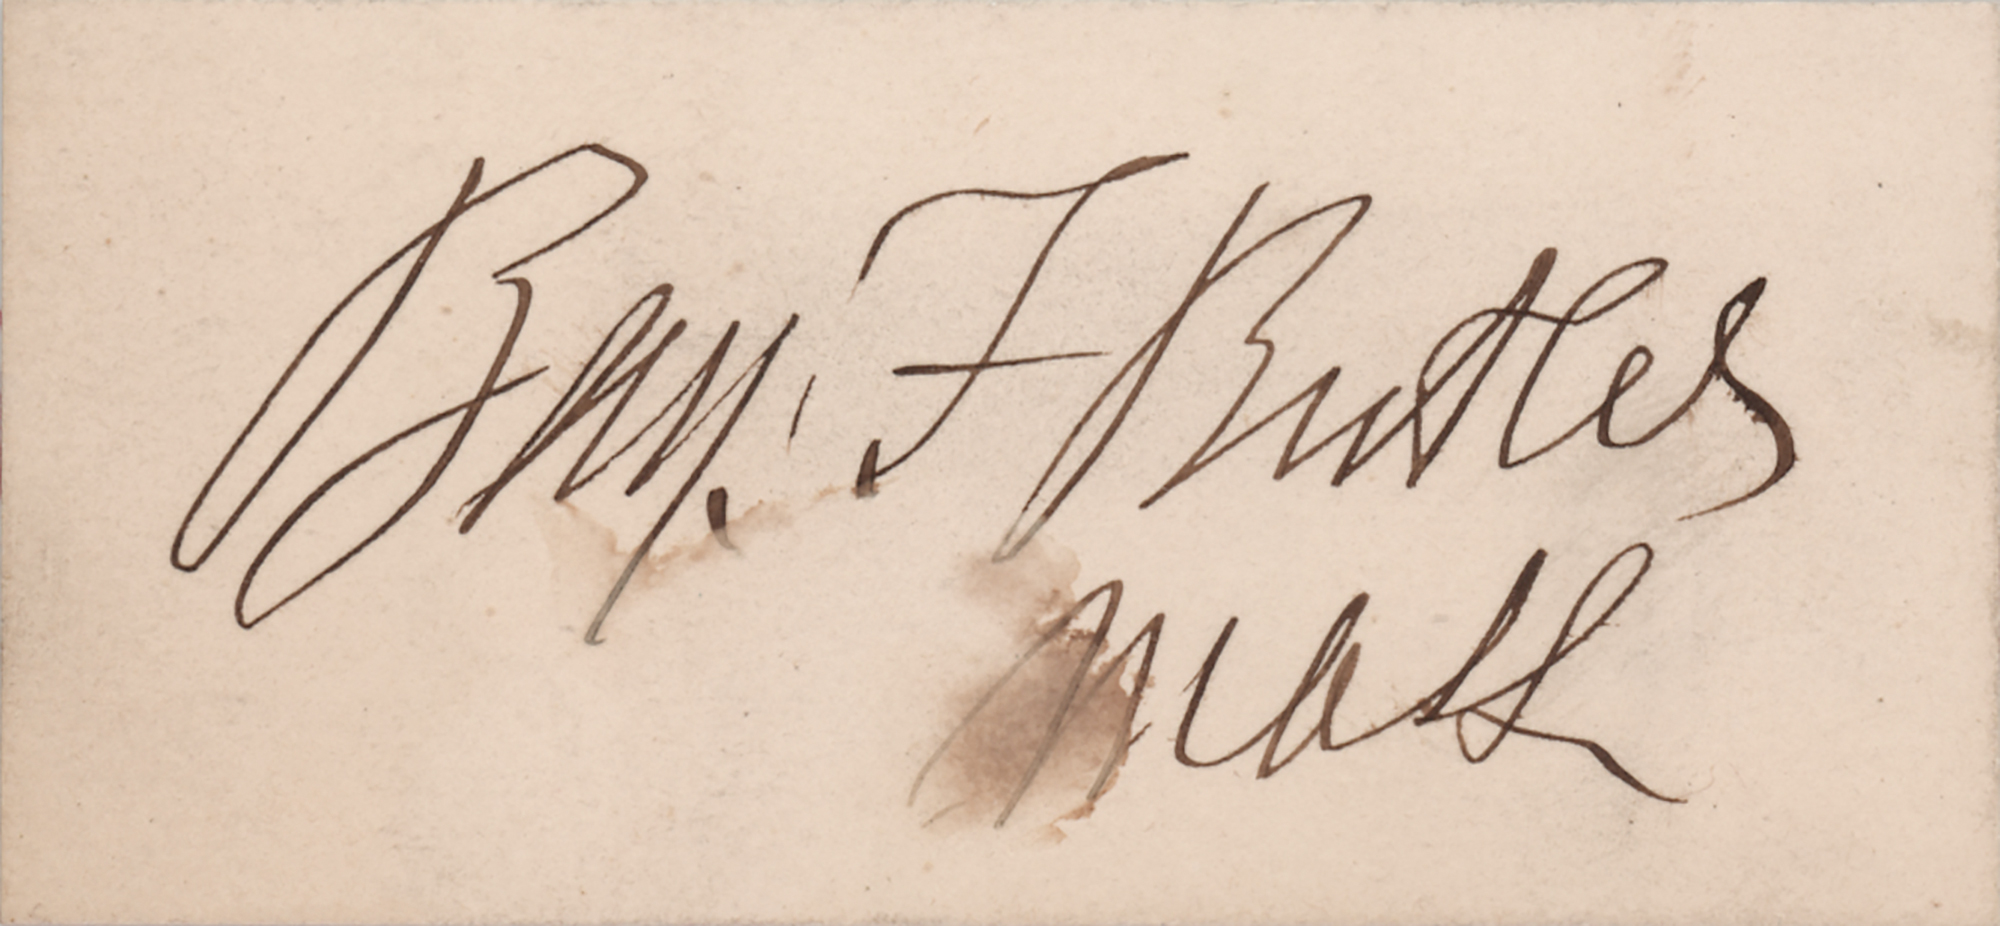 Benj. F Butler
Mass